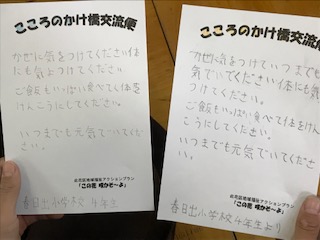 こころのかけ橋交流便
かぜに気をつけてください体
にも気よつけてください
ご飯もいっぱい食べて体を
けんこうにしてください。
いつまでも元気でいてくださ
い。
此花区地域福祉アクションプラン
「この花 咲かそーよ」
春日出小学校 4年生
こころのかけ橋交流便
かぜに気をつけていつまでも元
気でいてください体にも気を
つけてください。
ご飯もいっぱい食べて体をけん
こうにしてください。
いつまでも元気でいてくださ
い。
此花区地域福祉アクションプラン
「この花 咲かそーよ」
春日出小学校4年生より